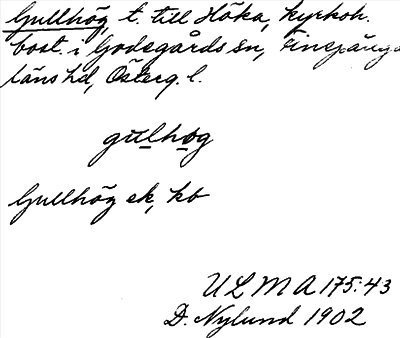 Gullhög, t. till Höka, kyrkoh.
bost. i Godegårds sn, Finspånga
läns hd, Österg. l.
gulhog
Gullhög ek, kb
ULMA 175:43
D. Nylund 1902